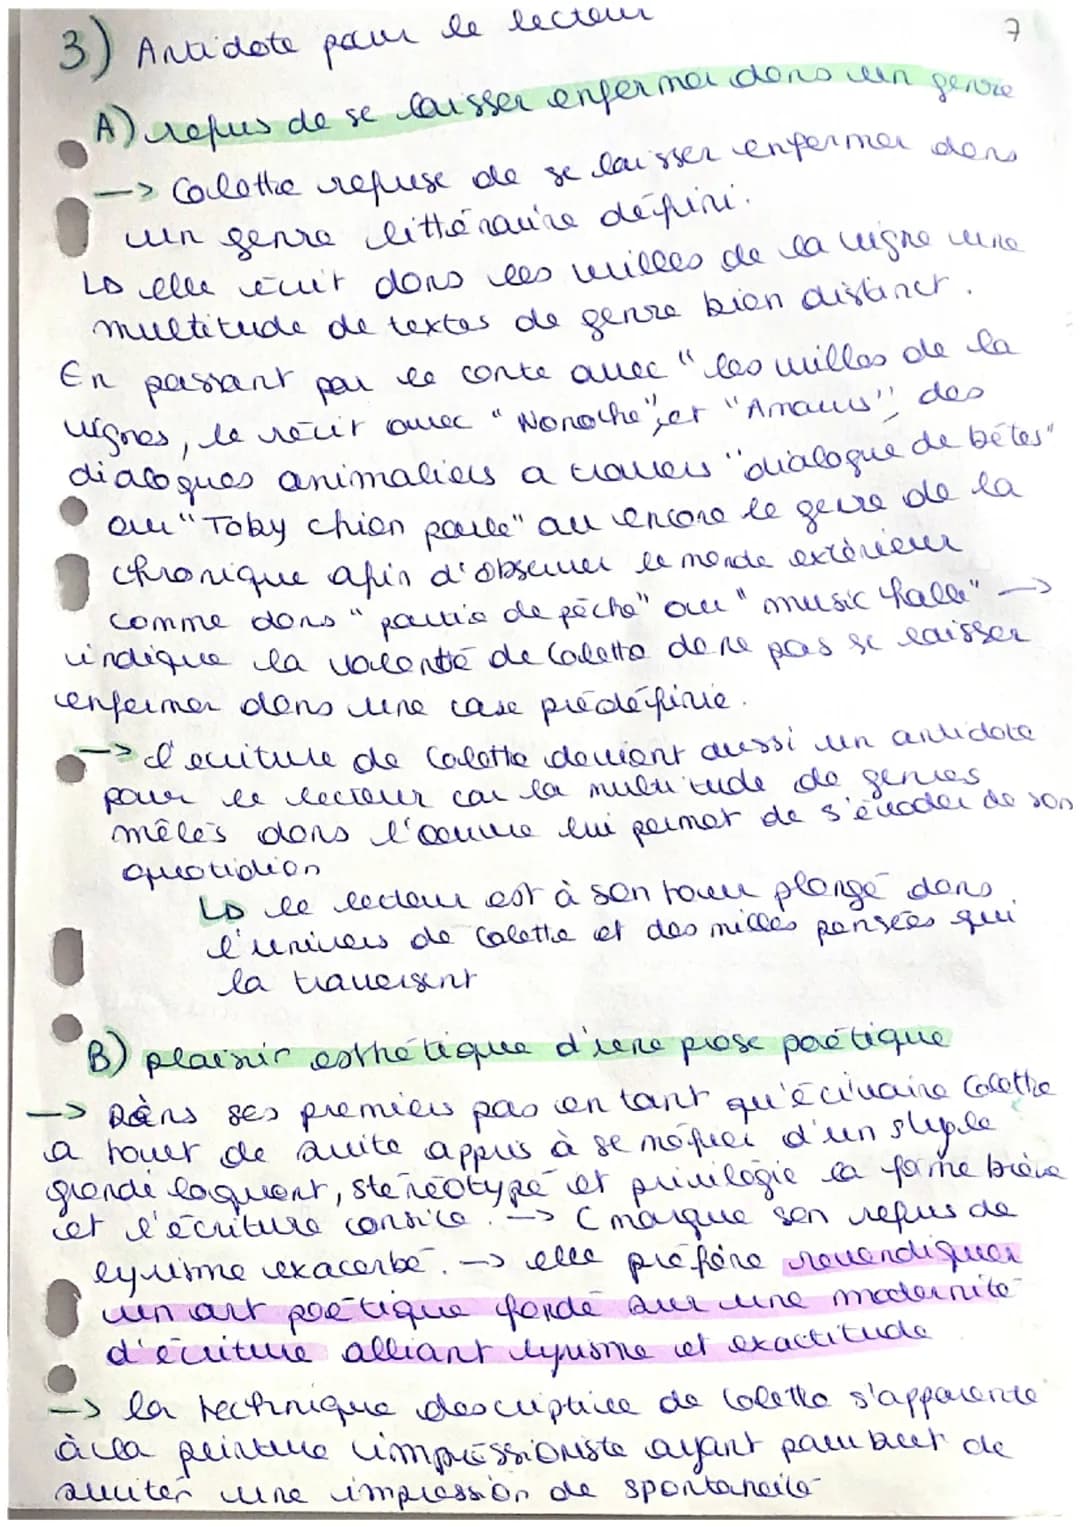 3) Antidote pour le lecteur
7
A) refus de se laisser enfermer dans un genre
—> Colette refuse de se laisser enfermer dans
un genre littéraire défini.
L> elle écrit dans les vrilles de la vigne une
multitude de textes de genre bien distinct.
En passant par le conte avec "les vrilles de la
vignes, le récit avec "Nonoche", et "Amours", des
dialogues animaliers a travers "dialogue de bêtes"
ou "Toby chien parle" ou encore le genre de la
chronique afin d'observer le monde extérieur
comme dans "partie de pêche" ou "music halls" —>
indique la volonté de Colette de ne pas se laisser
enfermer dans une case prédéfinie.
—> l'écriture de Colette devient aussi un antidote
pour le lecteur car la multitude de genres
mêlés dans l'oeuvre lui permet de s'évader de son
quotidien
L> le lecteur est à son tour plongé dans
l'univers de Colette et des milles pensées qui
la traversent
B) plaisir esthétique d'une prose poétique
—> Dans ses premiers pas en tant qu'écrivaine Colette
a tout de suite appris à se méfier d'un style
grandiloquent, stéréotypé et privilégie la forme brève
et l'écriture consice. —> C marque son refus de
lyrisme exacerbé. —> elle préfère revendiquer
un art poétique fondé sur une modernité
d'écriture alliant lyrisme et exactitude
—> la technique descriptive de Colette s'apparente
à la peinture impressioniste ayant pour but de
susciter une impression de spontanéité